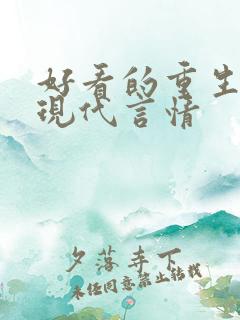 好看的重生
現代言情
夕落寺下
未经同意禁止转载